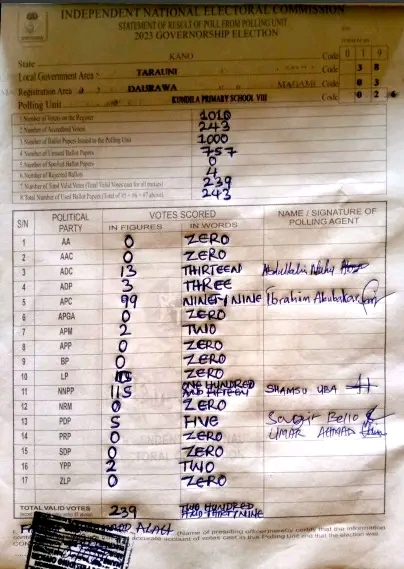 INDEPENDENT NATIONAL ELECTORAL COMMISSION
STATEMENT OF RESULT OF POLL FROM POLLING UNIT
2023 GOVERNORSHIP ELECTION
State KANO Code 0 1 9
Local Government Area TARAUNI Code 3 8
Registration Area DAURAWA MAGAMI Code 0 3
Polling Unit KUNDILA PRIMARY SCHOOL VIII Code 0 2 6
1. Number of Voters on the Register 1010
2. Number of Accredited Voters 243
3. Number of Ballot Papers Issued to the Polling Unit 1000
4. Number of Unused Ballot Papers 757
5. Number of Spoiled Ballot Papers 0
6. Number of Rejected Ballots 4
7. Number of Total Valid Votes (Total Valid Votes cast for all parties) 239
8. Total Number of Used Ballot Papers (Total of #5 + #6 + #7 above). 243
S/N POLITICAL PARTY VOTES SCORED NAME / SIGNATURE OF POLLING AGENT
IN FIGURES IN WORDS
1 AA 0 ZERO
2 AAC 0 ZERO
3 ADC 13 THIRTEEN
4 ADP 3 THREE
5 APC 99 NINETY NINE Ibrahim Abubakar
6 APGA 0 ZERO
7 APM 2 TWO
8 APP 0 ZERO
9 BP 0 ZERO
10 LP ZERO
11 NNPP 115 ONE HUNDRED AND FIFTEEN SHAMSU UBA
12 NRM 0 ZERO
13 PDP 5 FIVE Bello
14 PRP 0 ZERO UMAR AHMAD
15 SDP 0 ZERO
16 YPP 2 TWO
17 ZLP 0 ZERO
TOTAL VALID VOTES 239 TWO HUNDRED AND THIRTY NINE
(Name of presiding officer) hereby certify that the information
accurate account of votes cast in this Polling Unit and that the election was